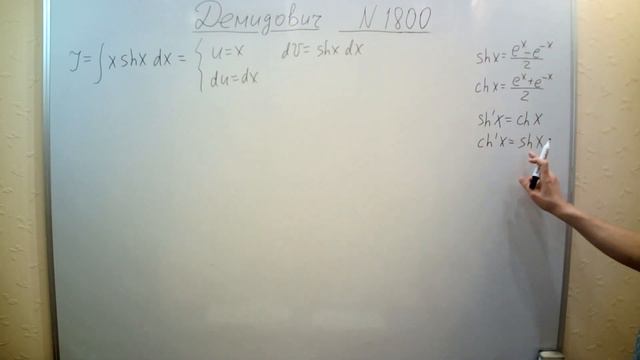 Демидович N 1800
J = ∫ x shx dx = { u = x dv = shx dx
du = dx
shx = (eˣ - e⁻ˣ)/2
chx = (eˣ + e⁻ˣ)/2
sh'x = chx
ch'x = shx